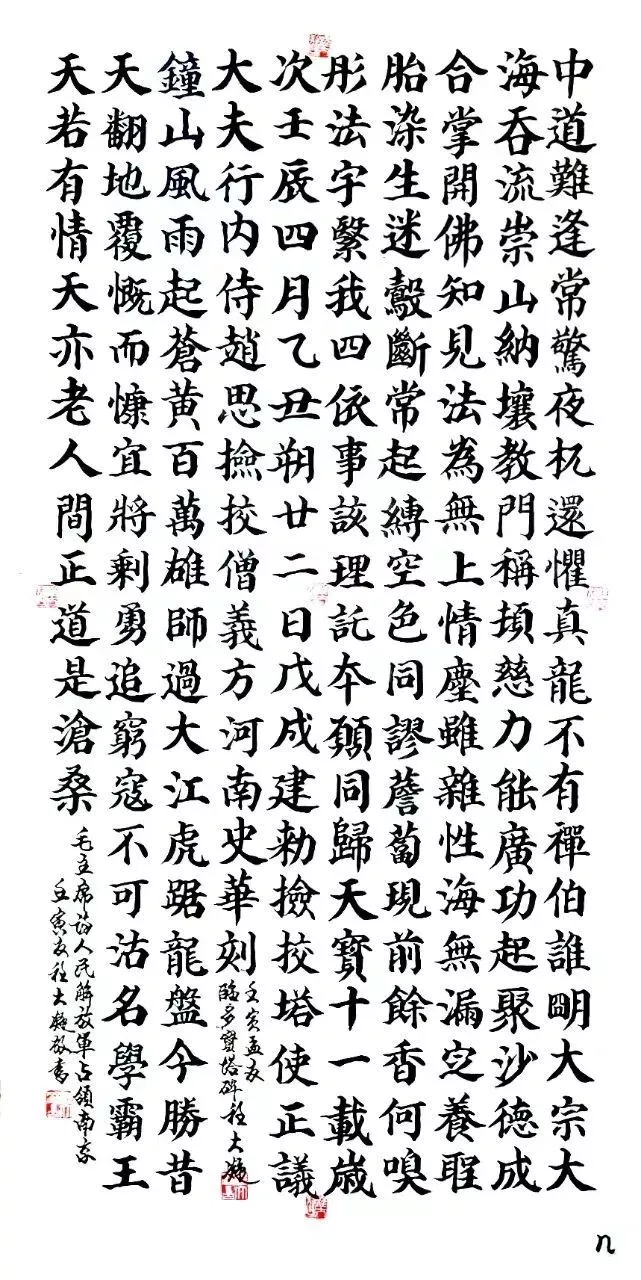 中道難逢常驚夜杌還懼真龍不有禪伯誰明大宗大
海吞流崇山納壤教門稱頓慈力能廣功起聚沙德成
合掌開佛知見法為無上情塵雖雜性海無漏定養聖
胎染生迷鷇斷常起縛空色同謬薝蔔現前餘香何嗅
彤法宇繫我四依事該理託夲願同歸天寶十一載歲
次壬辰四月乙丑朔廿二日戊戌建勑撿挍塔使正議
大夫行內侍趙思撿挍僧義方河南史華刻
壬寅孟夏
臨多寶塔碑程大
鐘山風雨起蒼黃百萬雄師過大江虎踞龍盤今勝昔
天翻地覆慨而慷宜將剩勇追窮寇不可沽名學霸王
天若有情天亦老人間正道是滄桑
毛主席詩人民解放軍占領南京
壬寅夏程大敬書
九